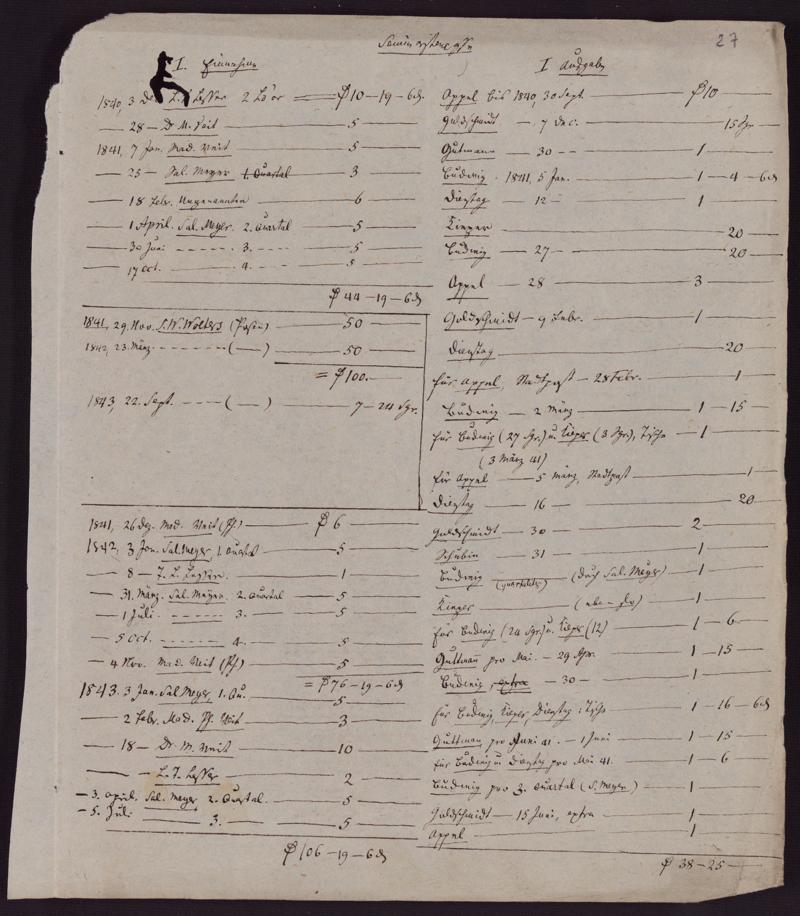 27
I. Einnahme
1840, 3 L. Lesser 2 Lo'or — ₰ 10 — 19 — 6 ₰
— 28 — Dr M. Veit — 5 —
1841, 7 Jan. Mad. Veit — 5 —
— 25 — Sal. Meyer 1. Quartal — 3 —
— 18 Febr. Ungenannten — 6 —
— 1 April. Sal. Meyer. 2. Quartal — 5 —
— 30 Juni - - - - - . 3. - - - - — 5 —
— 17 Oct. - - - - - . 4. - - - — 5 —
₰ 44 — 19 — 6 ₰
1841, 29. Nov. S. W. Wolters (Posen) — 50 —
1842, 23. März. - - - - - - (—) — 50 —
= ₰ 100. —
1843, 22. Sept. - - - - (—) — 7 — 24 Sgr.
1841, 26 Dez. Mad. Veit (Ph.) — ₰ 6
1842, 3 Jan. Sal. Meyer, 1. Quartal — 5 —
— 8 — Lesser — 1 —
— 31. März. Sal. Meyer. 2. Quartal — 5 —
— 1 Juli. - - - - - 3. — 5 —
— 5 Oct. - - - - - - 4. — 5 —
— 4 Nov. Mad. Veit (Ph.) — 5 —
= ₰ 76 — 19 — 6 ₰
1843. 3 Jan. Sal. Meyer, 1. Qu. — 5 —
— 2 Febr. Mad. Ph. Veit — 3 —
— 18 — Dr. M. Veit — 10 —
— L. J. Lesser — 2 —
— 3. April. Sal. Meyer, 2. Quartal — 5 —
— 5. Juli — 3. — 5 —
₰ 106 — 19 — 6 ₰
I Ausgabe
Appel bis 1840, 30 Sept. — ₰ 10
Goldschmidt — 7 Dec. — 15 Sgr
Gutmann — 30 — — 1 —
Budwig. 1841, 5 Jan. — 1 — 4 — 6 ₰
Dienstag — 12 — — 1 —
— 20 —
Budwig — 27 — — 20 —
Appel — 28 — 3 —
Goldschmidt — 9 Febr. — 1 —
Dienstag — 20 —
für Appel, Stadtpost — 28 Febr. — 1 —
Budwig — 2 März — 1 — 15 —
für Budwig (27 Sgr.) u. (3 Sgr.), Tische — 1 —
(3 März 41)
für Appel — 5 März, Stadtpost — 1 —
Dienstag — 16 — — 20
Goldschmidt — 30 — — 2 —
Schubin — 31 — — 1 —
Budwig (quartaliter) (durch Sal. Meyer) — 1 —
(eben — so) — 1 —
für Budwig (24 Sgr.) u. (12) — 1 — 6 —
Guttmann pro Mai. — 29 Apr. — 1 — 15 —
Budwig, extra — 30 — — 1 —
für Budwig, Dienstag: Tische — 1 — 16 — 6 ₰
Guttmann, pro Juni 41. — 1 Juni — 1 — 15 —
für Budwig u. Dienstag pro Mai 41. — 1 — 6 —
Budwig pro 3. Quartal (S. Meyer) — 1 —
Goldschmidt — 15 Juni, extra — 1 —
Appel — 1 —
₰ 38 — 25 —